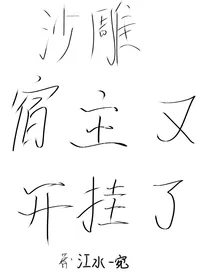 沙雕
宿主又
开挂了
江水一宛